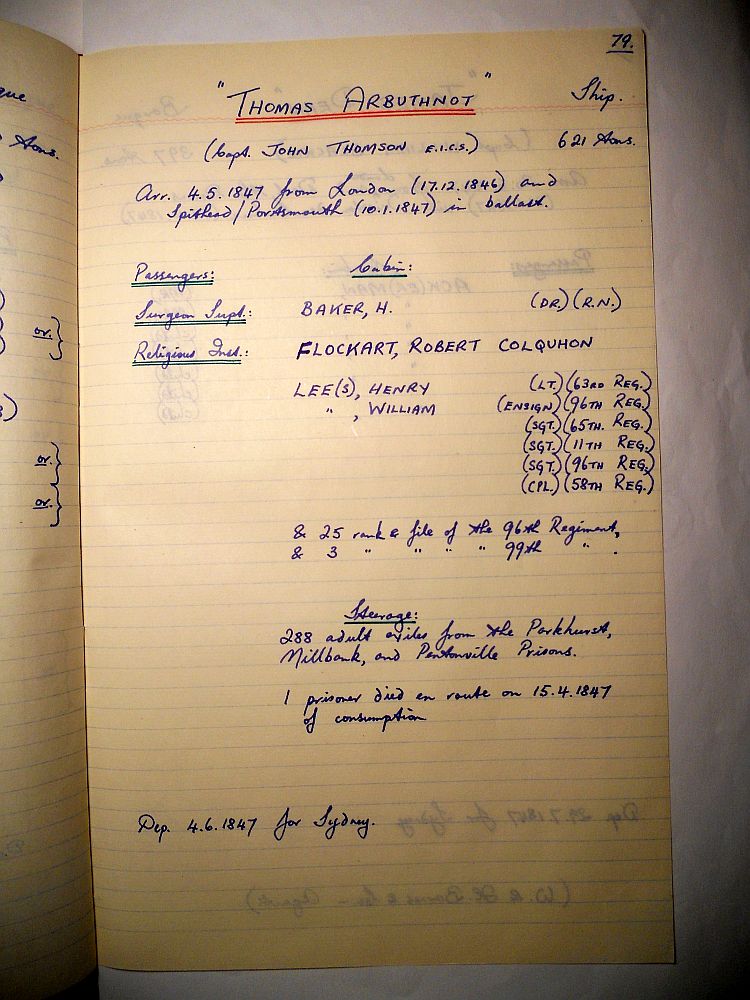 79.
"THOMAS ARBUTHNOT" Ship.
(Capt. JOHN THOMSON E.I.C.S.) 621 tons.
Arr. 4.5.1847 from London (17.12.1846) and
Spithead/Portsmouth (10.1.1847) in ballast.
Passengers: Cabin:
Surgeon Supt.: BAKER, H. (DR.) (R.N.)
Religious Inst.: FLOCKART, ROBERT COLQUHON
LEE(S), HENRY (LT.) (63RD REG.)
" , WILLIAM (ENSIGN) (96TH REG.)
(SGT.) (65TH. REG.)
(SGT.) (11TH REG.)
(SGT.) (96TH REG.)
(CPL.) (58TH REG.)
& 25 rank & file of the 96th Regiment,
& 3 " " " " 99th " .
Steerage:
288 adult exiles from the Parkhurst,
Millbank, and Pentonville Prisons.
1 prisoner died en route on 15.4.1847
of consumption
Dep. 4.6.1847 for Sydney.
tons.
or.}
or.}
or.}